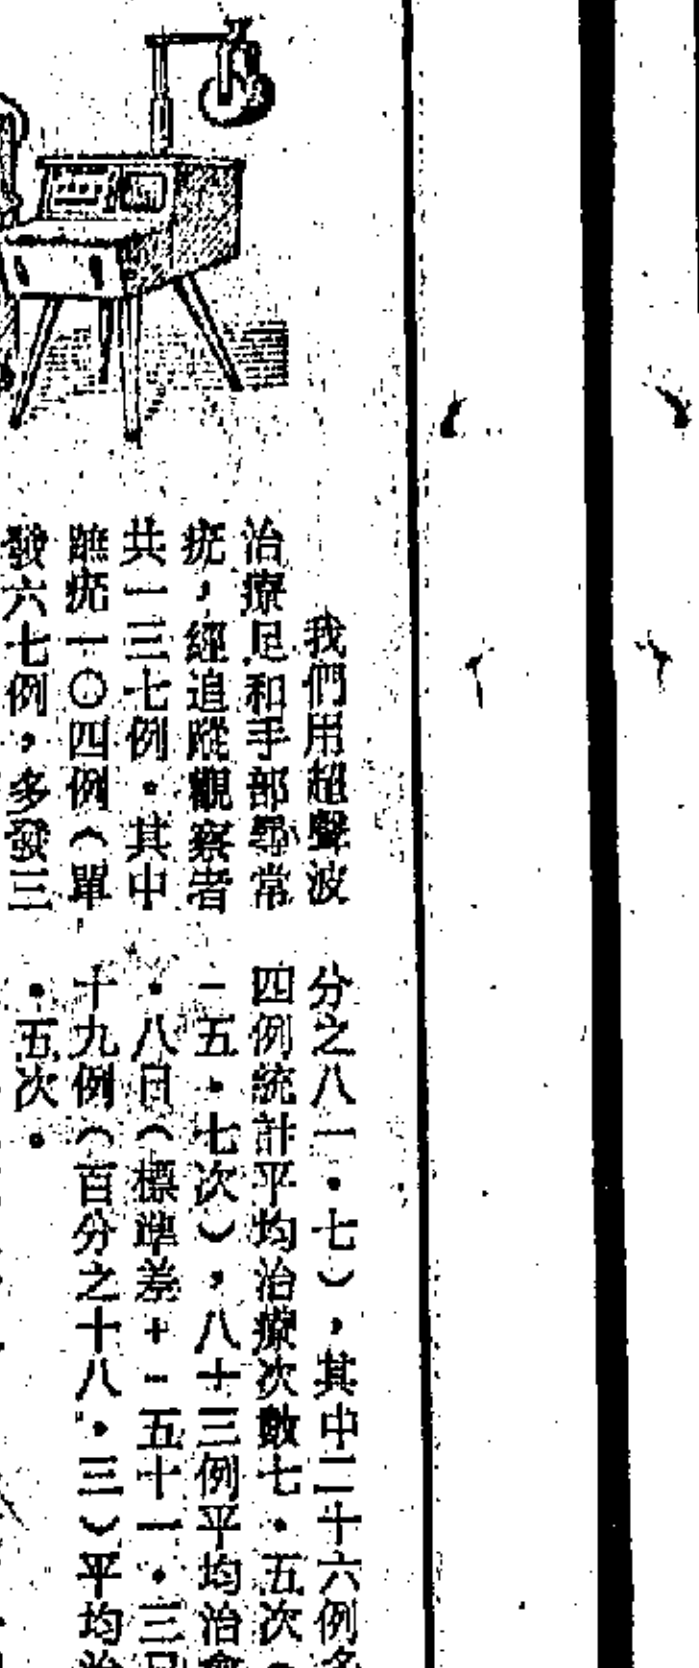 我們用超聲波
治療足和手部尋常
疣，經追蹤觀察者
共一三七例。其中
蹠疣一〇四例（單
發六七例，多發三
分之八一・七），其中二十六例多
四例統計平均治療次數七・五次
一五・七次），八十三例平均治
・八日（標準差+-五十一・三日
十九例（百分之十八・三）平均治
・五次。